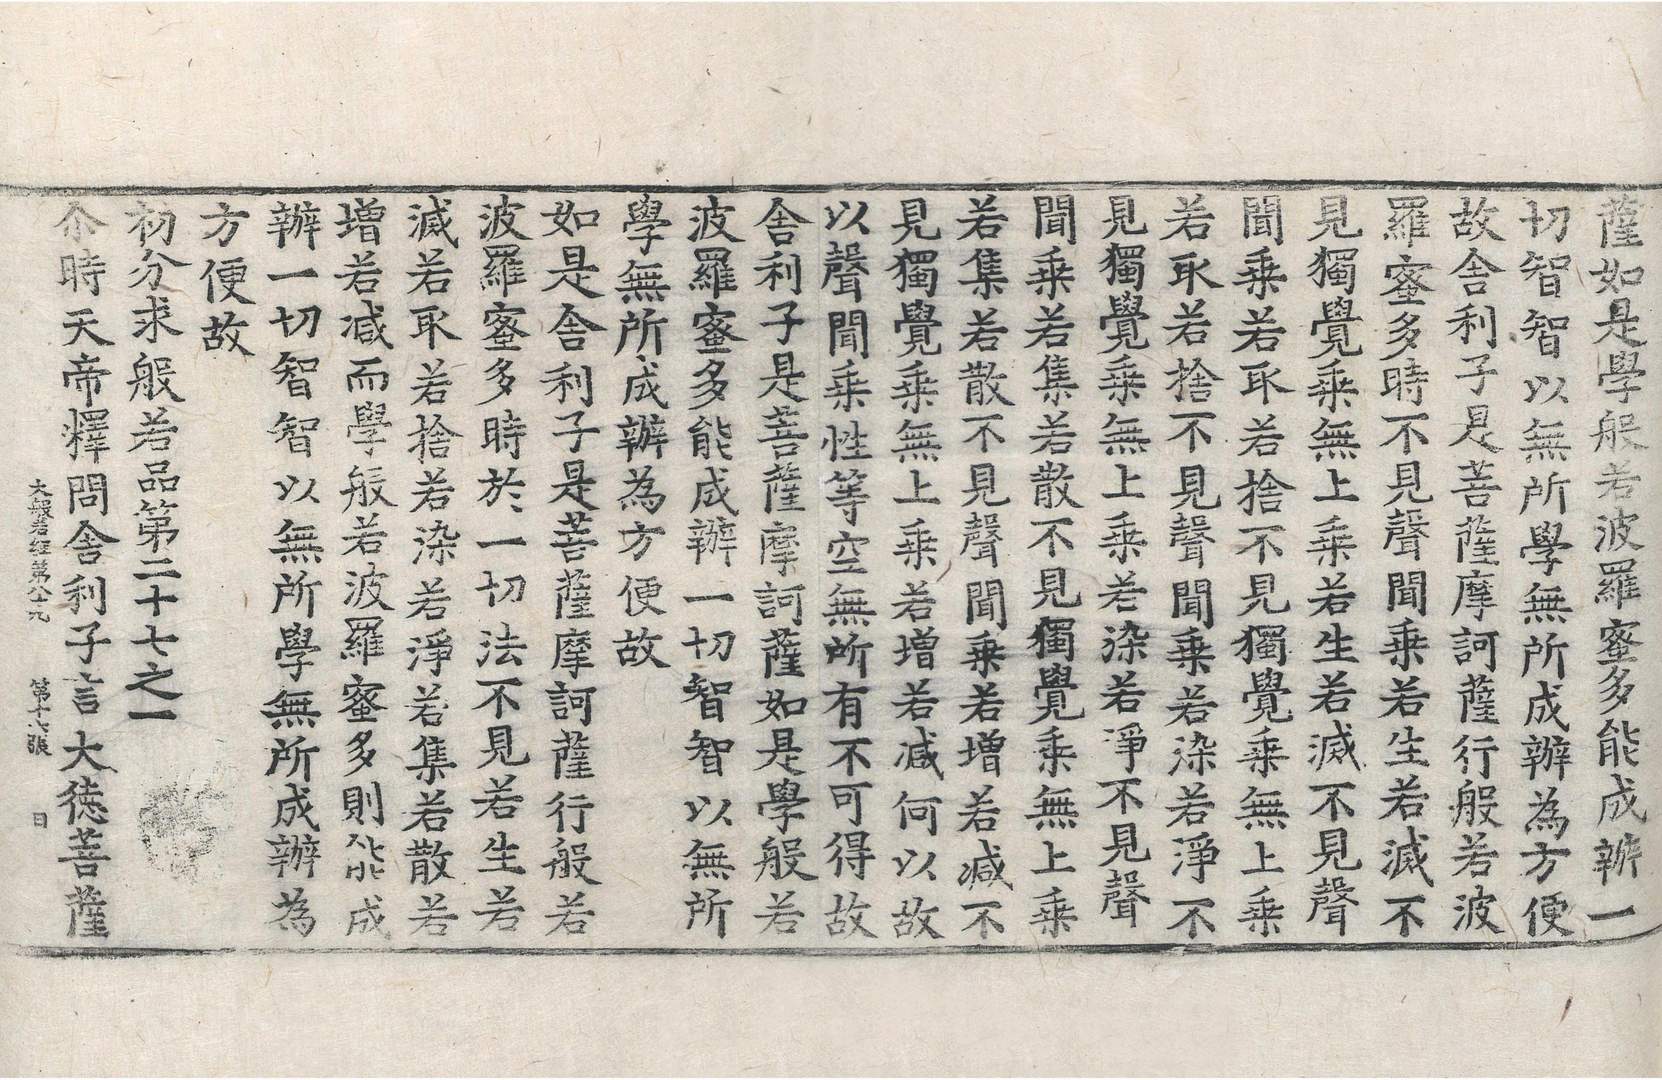 薩如是學般若波羅蜜多能成辦一
切智智以無所學無所成辦為方便
故舍利子是菩薩摩訶薩行般若波
羅蜜多時不見聲聞乗若生若滅不
見獨覺乗無上乗若生若滅不見聲
聞乗若取若捨不見獨覺乗無上乗
若取若捨不見聲聞乗若染若淨不
見獨覺乗無上乗若染若淨不見聲
聞乗若集若散不見獨覺乗無上乗
若集若散不見聲聞乗若增若減不
見獨覺乗無上乗若增若減何以故
以聲聞乗性等空無所有不可得故
舍利子是菩薩摩訶薩如是學般若
波羅蜜多能成辦一切智智以無所
學無所成辦為方便故
如是舍利子是菩薩摩訶薩行般若
波羅蜜多時於一切法不見若生若
滅若取若捨若染若淨若集若散若
增若減而學般若波羅蜜多則能成
辦一切智智以無所學無所成辦為
方便故
初分求般若品第二十七之一
尒時天帝釋問舍利子言大德菩薩
大般若經第八九 第十六張 日